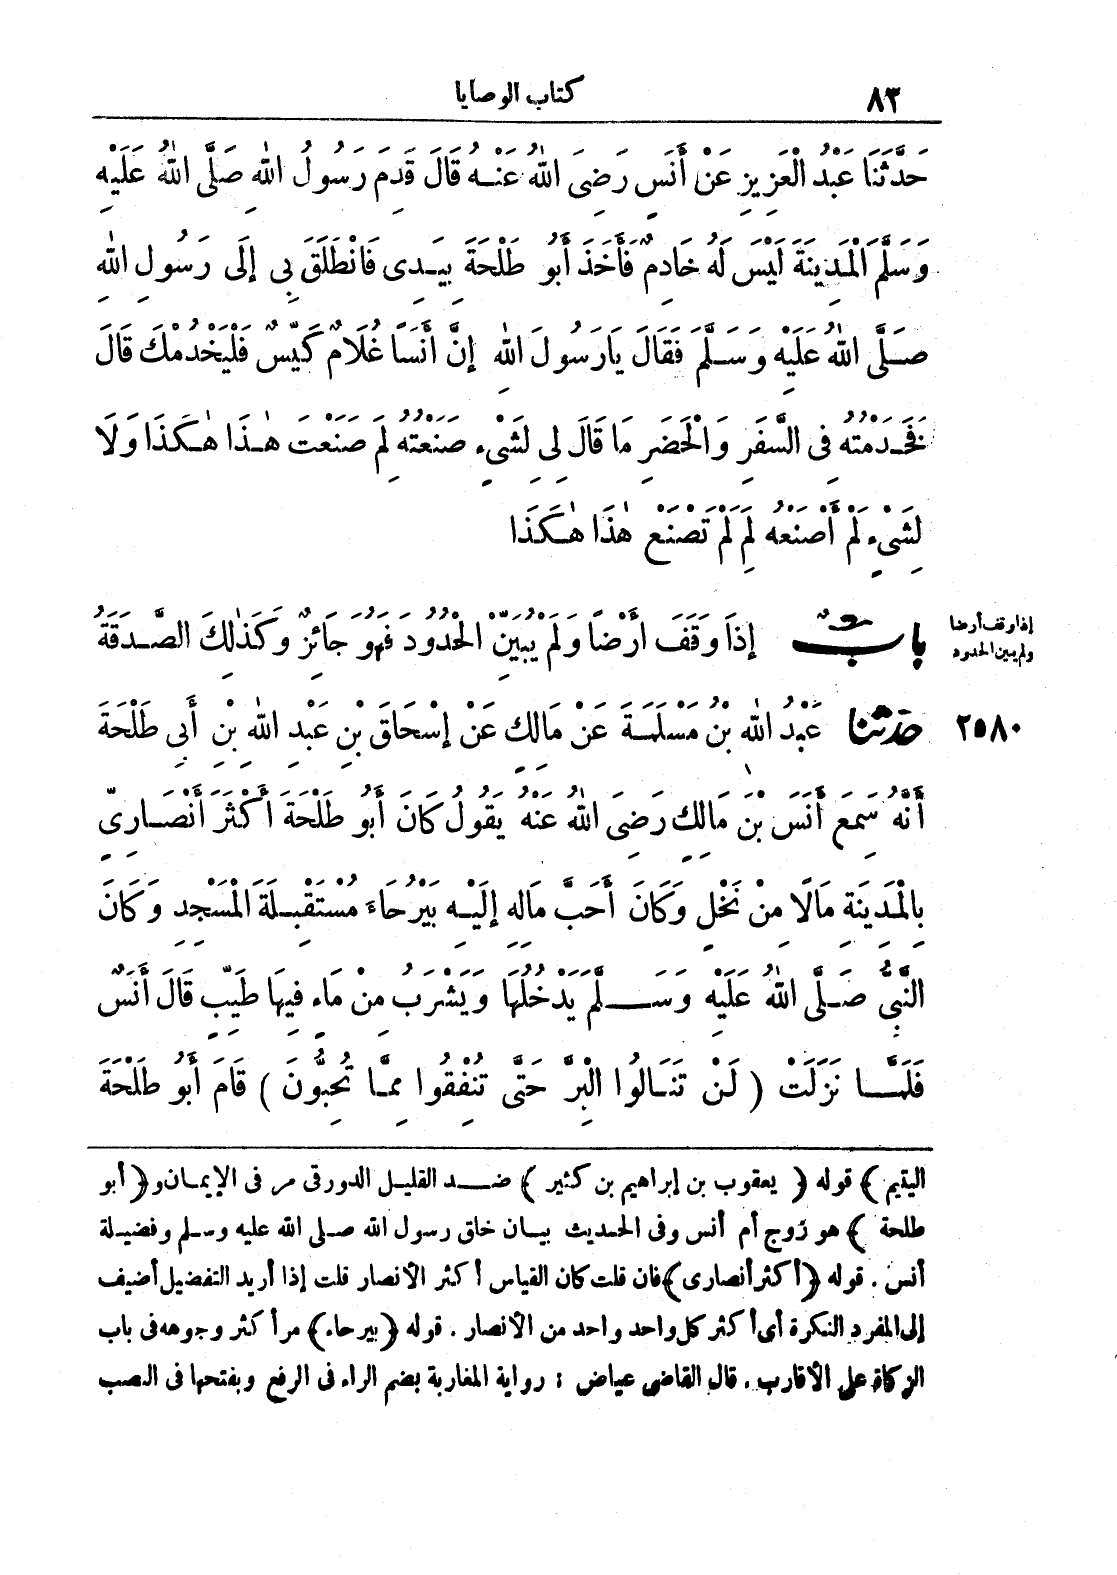 ٨٣ كتاب الوصايا
حَدَّثَنَا عَبْدُ الْعَزِيزِ عَنْ أَنَسٍ رَضِىَ اللهُ عَنْهُ قَالَ قَدِمَ رَسُولُ اللهِ صَلَّى اللهُ عَلَيْهِ
وَسَلَّمَ الْمَدِينَةَ لَيْسَ لَهُ خَادِمٌ فَأَخَذَ أَبُو طَلْحَةَ بِيَدِى فَانْطَلَقَ بِى إِلَى رَسُولِ اللهِ
صَلَّى اللهُ عَلَيْهِ وَسَلَّمَ فَقَالَ يَارَسُولَ اللهِ إِنَّ أَنَسًا غُلَامٌ كَيِّسٌ فَلْيَخْدُمْكَ قَالَ
فَخَدَمْتُهُ فِى السَّفَرِ وَالْحَضَرِ مَا قَالَ لِى لِشَىْءٍ صَنَعْتُهُ لِمَ صَنَعْتَ هٰذَا هٰكَذَا وَلَا
لِشَىْءٍ لَمْ أَصْنَعْهُ لِمَ لَمْ تَصْنَعْ هٰذَا هٰكَذَا
بَابٌ إِذَا وَقَفَ أَرْضًا وَلَمْ يُبَيِّنْ الْحُدُودَ فَهُوَ جَائِزٌ وَكَذٰلِكَ الصَّدَقَةُ
إذا وقف أرضا
ولم يبين الحدود
٢٥٨٠ حَدَّثَنَا عَبْدُ اللهِ بْنُ مَسْلَمَةَ عَنْ مَالِكٍ عَنْ إِسْحَاقَ بْنِ عَبْدِ اللهِ بْنِ أَبِى طَلْحَةَ
أَنَّهُ سَمِعَ أَنَسَ بْنَ مَالِكٍ رَضِىَ اللهُ عَنْهُ يَقُولُ كَانَ أَبُو طَلْحَةَ أَكْثَرَ أَنْصَارِىٍّ
بِالْمَدِينَةِ مَالًا مِنْ نَخْلٍ وَكَانَ أَحَبَّ مَالِهِ إِلَيْهِ بَيْرُحَاءَ مُسْتَقْبِلَةَ الْمَسْجِدِ وَكَانَ
النَّبِىُّ صَلَّى اللهُ عَلَيْهِ وَسَلَّمَ يَدْخُلُهَا وَيَشْرَبُ مِنْ مَاءٍ فِيهَا طَيِّبٍ قَالَ أَنَسٌ
فَلَمَّا نَزَلَتْ ( لَنْ تَنَالُوا الْبِرَّ حَتَّى تُنْفِقُوا مِمَّا تُحِبُّونَ ) قَامَ أَبُو طَلْحَةَ
اليتيم) قوله (يعقوب بن إبراهيم بن كثير) ضد القليل الدورقى مر فى الإيمان و(أبو
طلحة) هو زوج أم أنس وفى الحديث بيان خلق رسول الله صلى الله عليه وسلم وفضيلة
أنس . قوله (أكثر أنصارى) فان قلت كان القياس أكثر الأنصار قلت إذا أريد التفضيل أضيف
إلى المفرد النكرة أى أكثر كل واحد واحد من الأنصار . قوله (بيرحاء) مر أكثر وجوهه فى باب
الزكاة على الأقارب . قال القاضى عياض : رواية المغاربة بضم الراء فى الرفع وبفتحها فى النصب